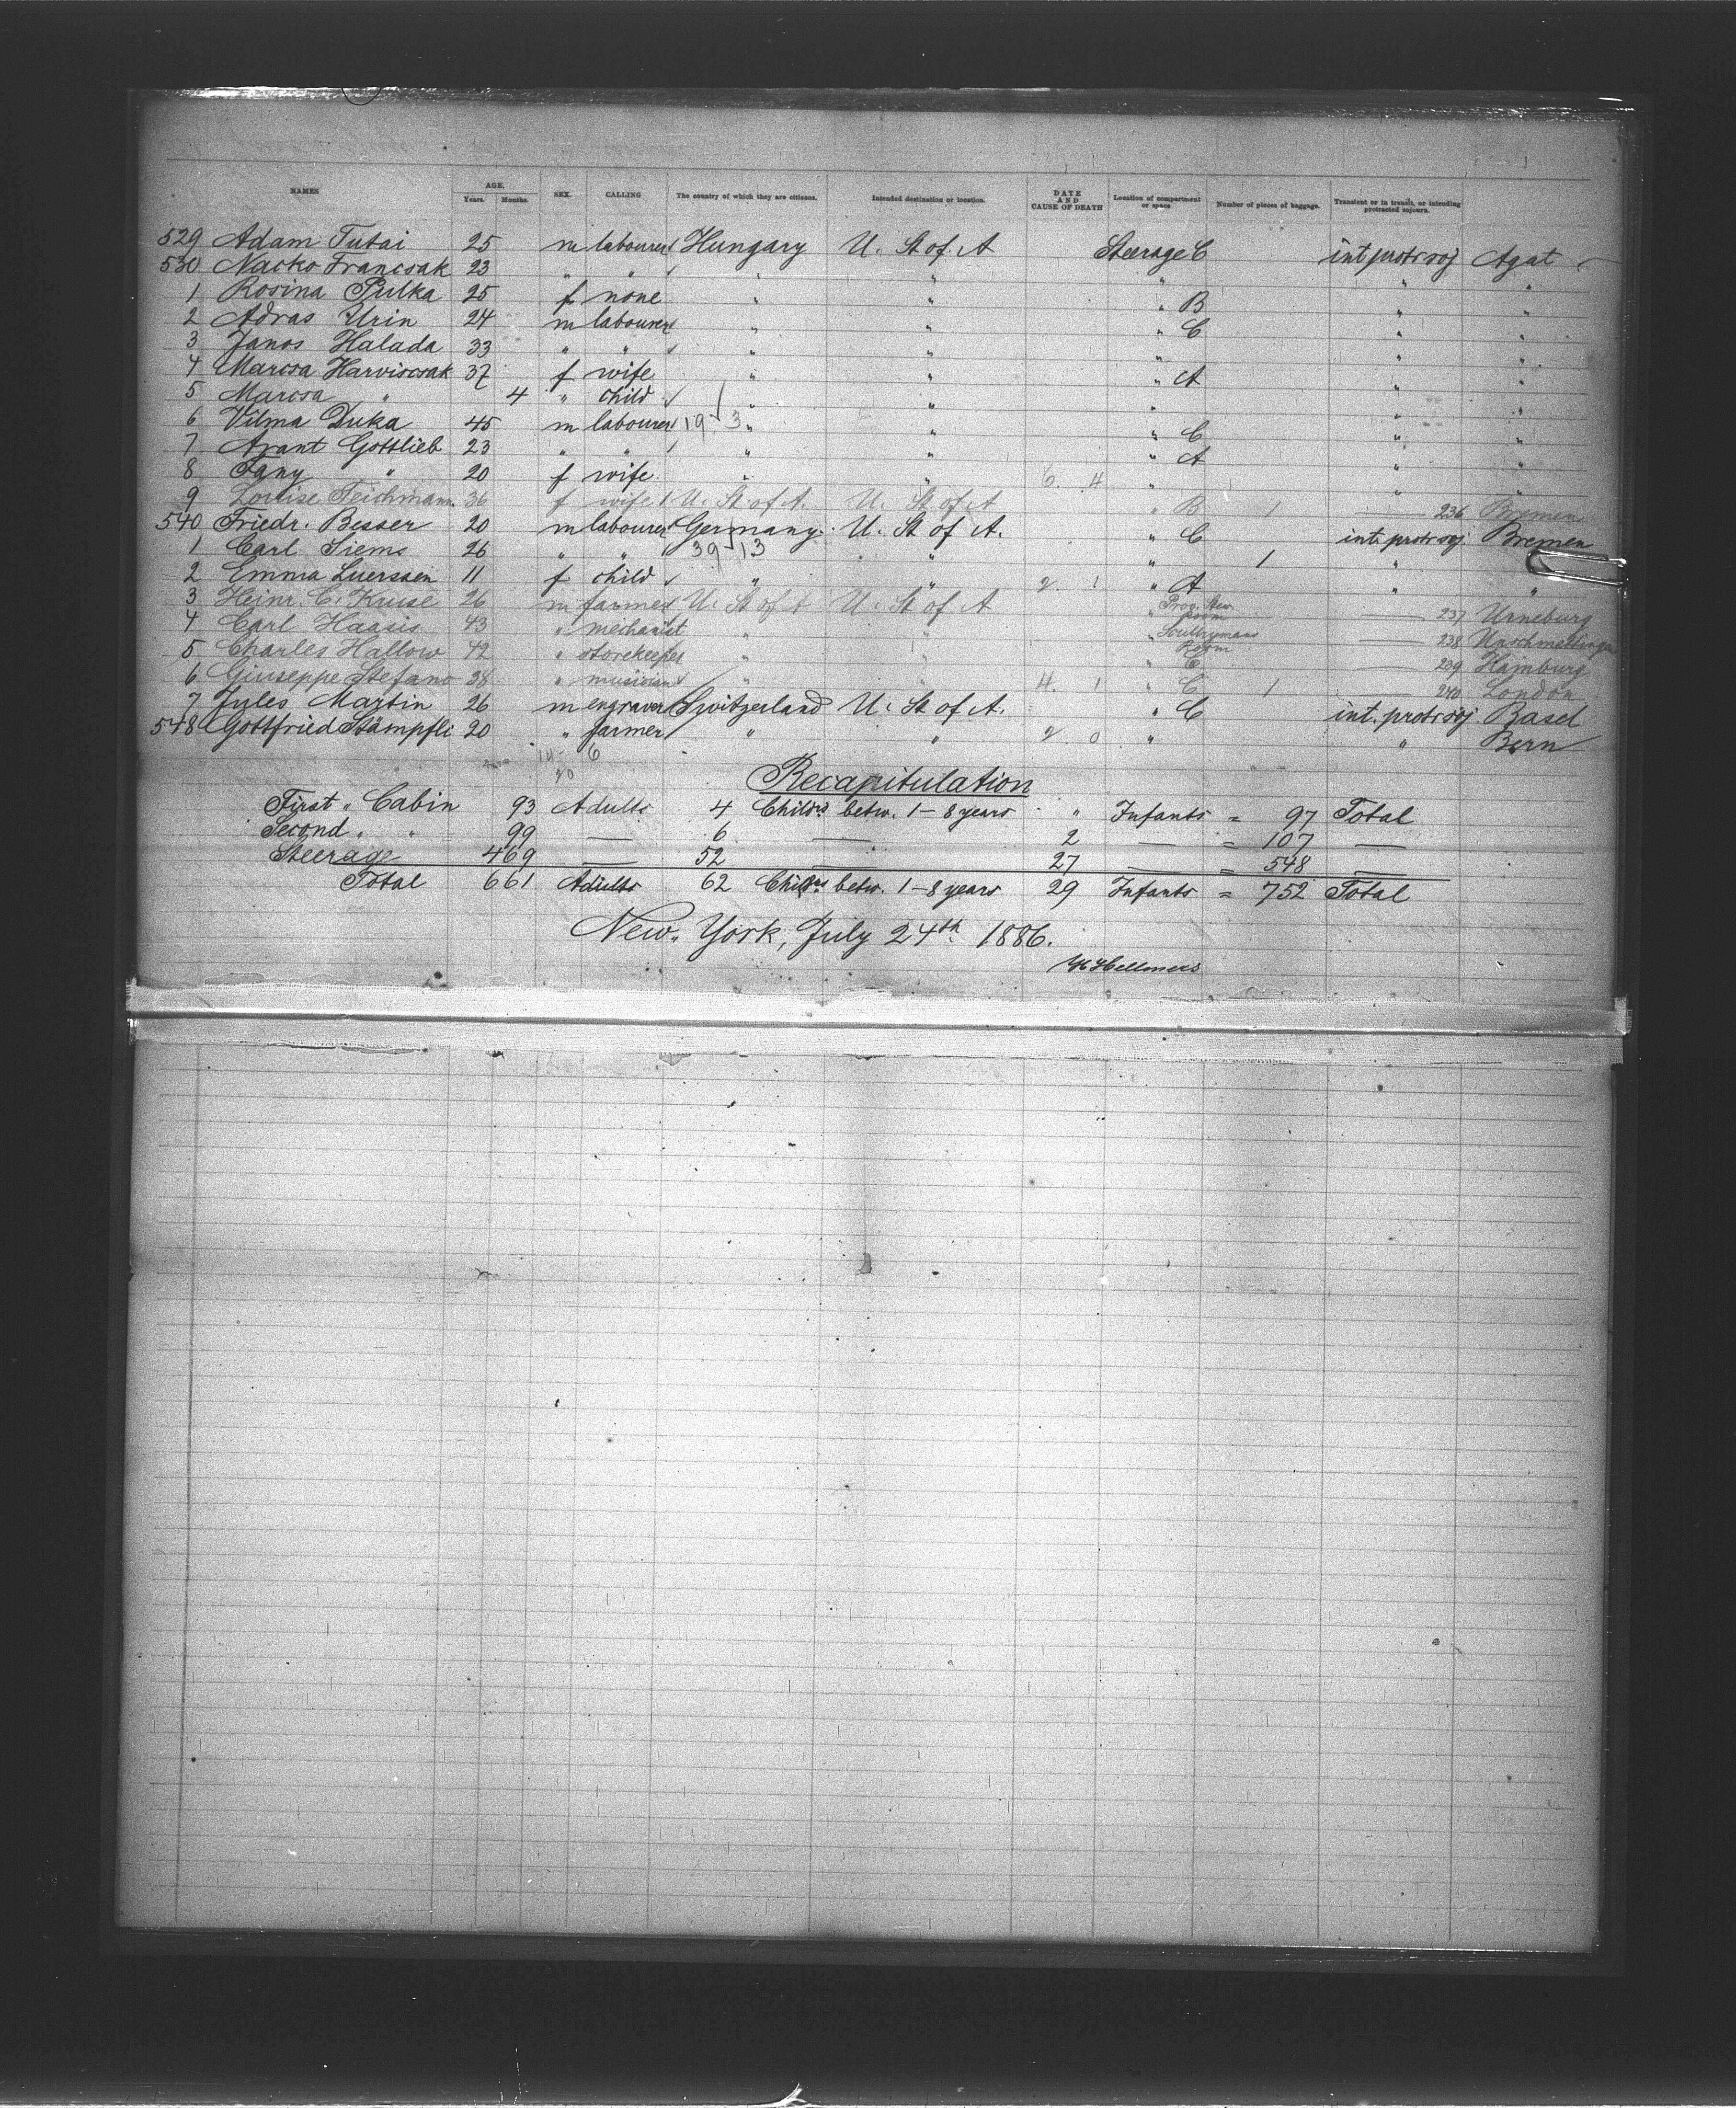 NAMES AGE. Years. Months. SEX. CALLING The country of which they are citizens. Intended destination or location. DATE AND CAUSE OF DEATH Location of compartment or space. Number of pieces of baggage. Transient or in transit, or intending protracted sojourn.
529 Adam Tutai 25 m labourer Hungary U. St of. A Steerage C int protr soj Agat
530 Nacko Francsak 23 " " " " " " "
1 Rosina Pulka 25 f none " " " B " "
2 Adras Urin 24 m labourer " " " C " "
3 Janos Halada 33 " " " " " " "
4 Marcsa Harviscsak 37 f wife " " " A " "
5 Marcsa " 4 " child " " " " "
6 Vilma Duka 45 m labourer 19-3 " " " C " "
7 Arant Gottlieb 23 " " " " " A " "
8 Fany " 20 f wife " " 6. 4 " " "
9 Louise Teichmann. 36 f wife U. St of A. U. St of A " B 1 236 Bremen
540 Friedr. Besser 20 m labourer Germany U. St of A. " C int. protr soj. Bremen
1 Carl Siems 26 " " 39-13 " " 1 " "
2 Emma Luerssen 11 f child " " 2. 1 " A " "
3 Heinr. C. Kruse 26 m farmer U. St of A U. St of A " Prov. Stew. Room 237 Urneburg
4 Carl Haasis 43 " mechanist " " " Scullrymans Room 238
5 Charles Hallow 42 " storekeeper " " " C 239 Hamburg
6 Giuseppe Stefano 38 " musician " " 4. 1 " C 1 240 London
7 Jules Martin 26 m engraver Switzerland U. St of A. " C int. protr soj Basel
548 Gottfried Stämpfli 20 " farmer " " 2. 0 " " Bern
14- 6
20
Recapitulation
First " Cabin 93 Adults 4 Childrs betw. 1-8 years " Infants = 97 Total
Second " " 99 — 6 — 2 — = 107 —
Steerage 469 — 52 — 27 — = 548 —
Total 661 Adults 62 Childrs betw. 1-8 years 29 Infants = 752 Total
New. York, July 24th 1886.
H Hellmers